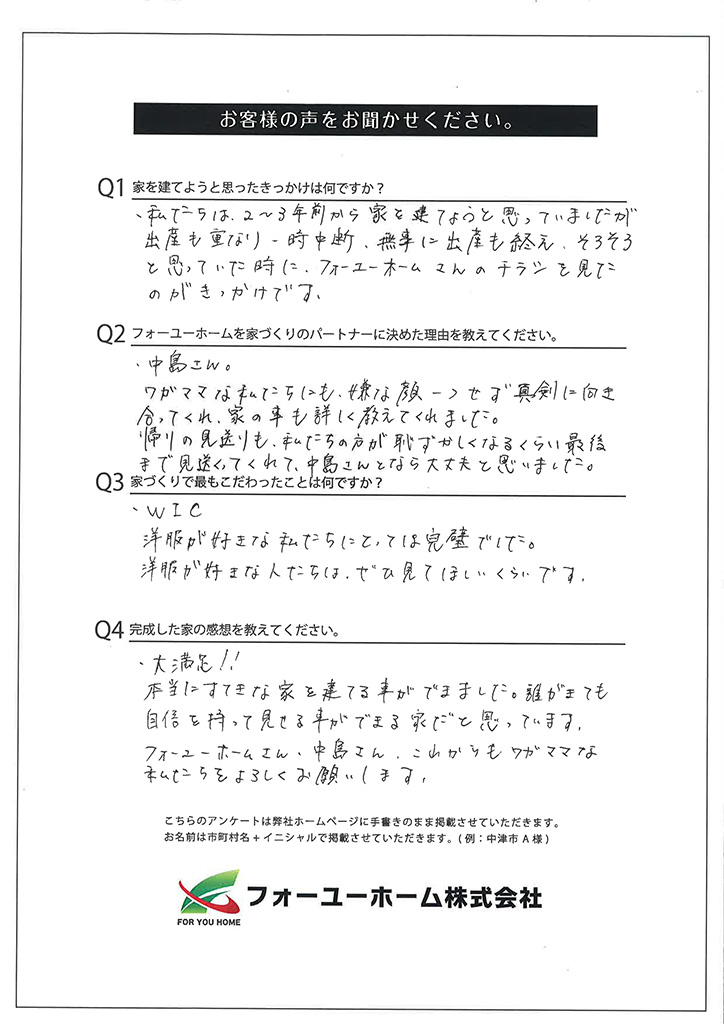 お客様の声をお聞かせください。
Q1 家を建てようと思ったきっかけは何ですか？
・私たちは、2〜3年前から家を建てようと思っていましたが
出産も重なり一時中断、無事に出産も終え、そろそろ
と思っていた時に、フォーユーホームさんのチラシを見た
のがきっかけです。
Q2 フォーユーホームを家づくりのパートナーに決めた理由を教えてください。
・中島さん。
ワガママな私たちにも、嫌な顔一つせず真剣に向き
合ってくれ、家の事も詳しく教えてくれました。
帰りの見送りも、私たちの方が恥ずかしくなるくらい最後
まで見送ってくれて、中島さんとなら大丈夫と思いました。
Q3 家づくりで最もこだわったことは何ですか？
・WIC
洋服が好きな私たちにとっては完璧でした。
洋服が好きな人たちは、ぜひ見てほしいくらいです。
Q4 完成した家の感想を教えてください。
・大満足!!
本当にすてきな家を建てる事ができました。誰がきても
自信を持って見せる事ができる家だと思っています。
フォーユーホームさん、中島さん、これからもワガママな
私たちをよろしくお願いします。
こちらのアンケートは弊社ホームページに手書きのまま掲載させていただきます。
お名前は市町村名+イニシャルで掲載させていただきます。(例：中津市A様)
フォーユーホーム株式会社
FOR YOU HOME